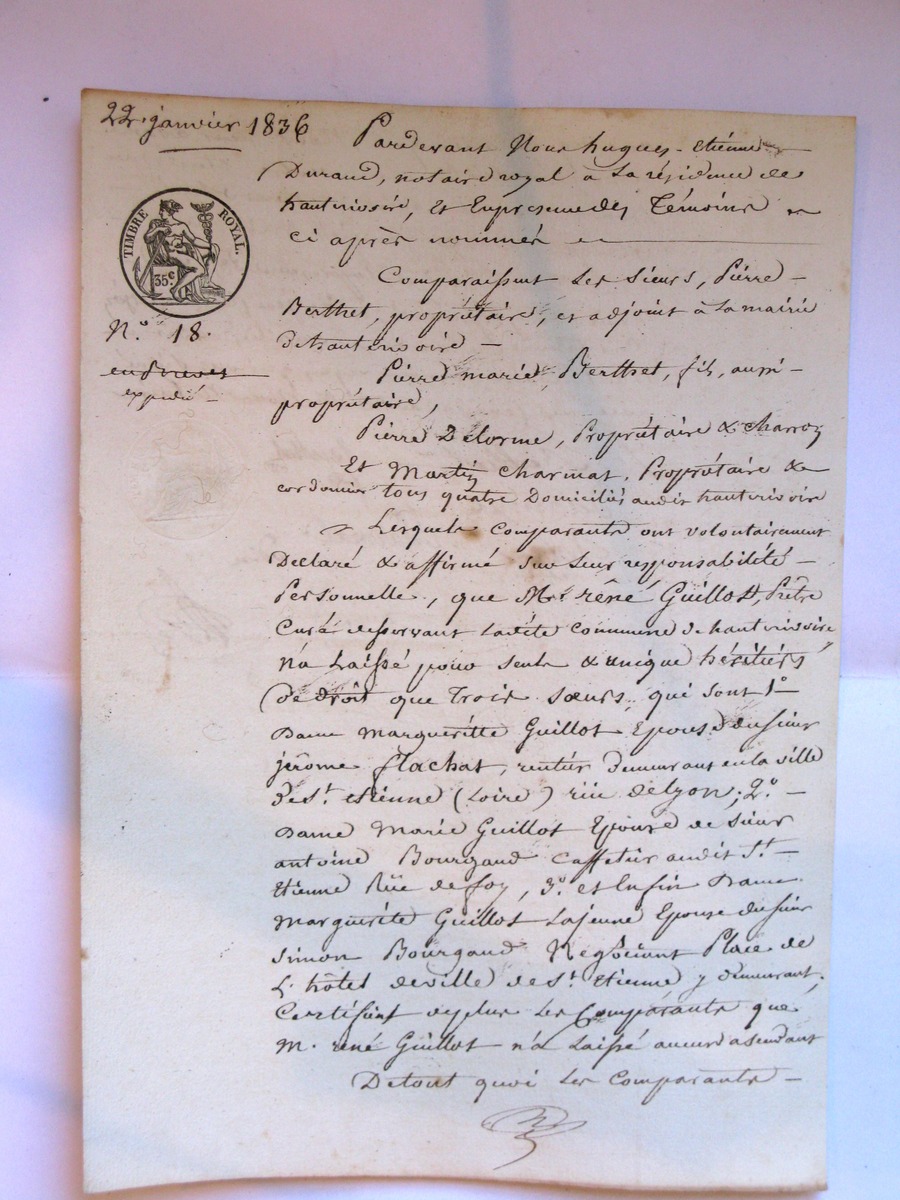 22. janvier 1836
Pardevant Nous hugues-etiénne
Durand, notaire royal à la résidence de
hauterivoire, et En presence des Témoins
ci après nommés
TIMBRE ROYAL.
35c
Comparaissent Les sieurs, Piérre
Berthet, propriétaire, et adjoint à la mairie
N.o 18.
de hauterivoire
en Brevet
Piérre marié Berthet, fils, aussi
expédié
propriétaire,
Piérre Delorme, Propriétaire & charron
Et Martin charmat, Propriétaire &
cordonnier tous quatre Domiciliés audit hauterivoire
Lesquels comparants ont volontairement
Déclaré & affirmé sur Leur responsabilité
Personnelle, que Mr. réné Guillot, Prêtre
Curé desservant Ladite commune de hauterivoire
n'a Laissé pour seuls & unique héritiers
de droit que Trois sœurs, qui sont 1o
Dame marguéritte Guillot Epouse du sieur
jérome flachat, rentier demeurant en la ville
de St. etienne (Loire) rüe de lyon; 2o.
Dame Marie Guillot Epouse de sieur
antoine Bourgaud caffetier audit St.
Etienne Rüe de foy, 3o. et Enfin Dame
Marguérite Guillot Lajeune Epouse du sieur
simon Bourgaud Négociant Place de
L'hôtel de ville de St. Etienne y demeurant;
Certifient de plus Les Comparants que
M. réné Guillot n'a Laissé aucun ascendant
De tout quoi Les Comparants